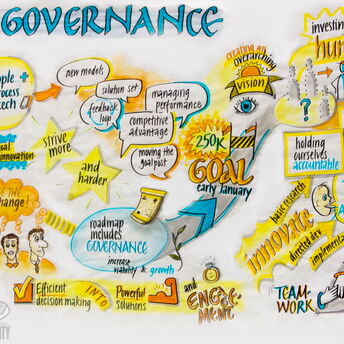 GOVERNANCE
investing
hum
creating an
overarching
vision
ople +
process
tech
new models
solution set
feedback
loop
managing
performance
competitive
advantage
moving the
goal post
250K
GOAL
early January
holding
ourselves
accountable
ual
innovation
strive
more
and
harder
THE
change!
roadmap
includes
GOVERNANCE
increase
viability & growth
basic research
innovate
directed dev
implementa
Efficient
decision making
INTO
Powerful
solutions
and
ENGAGE-
MENT
TEAM-
WORK
ITY